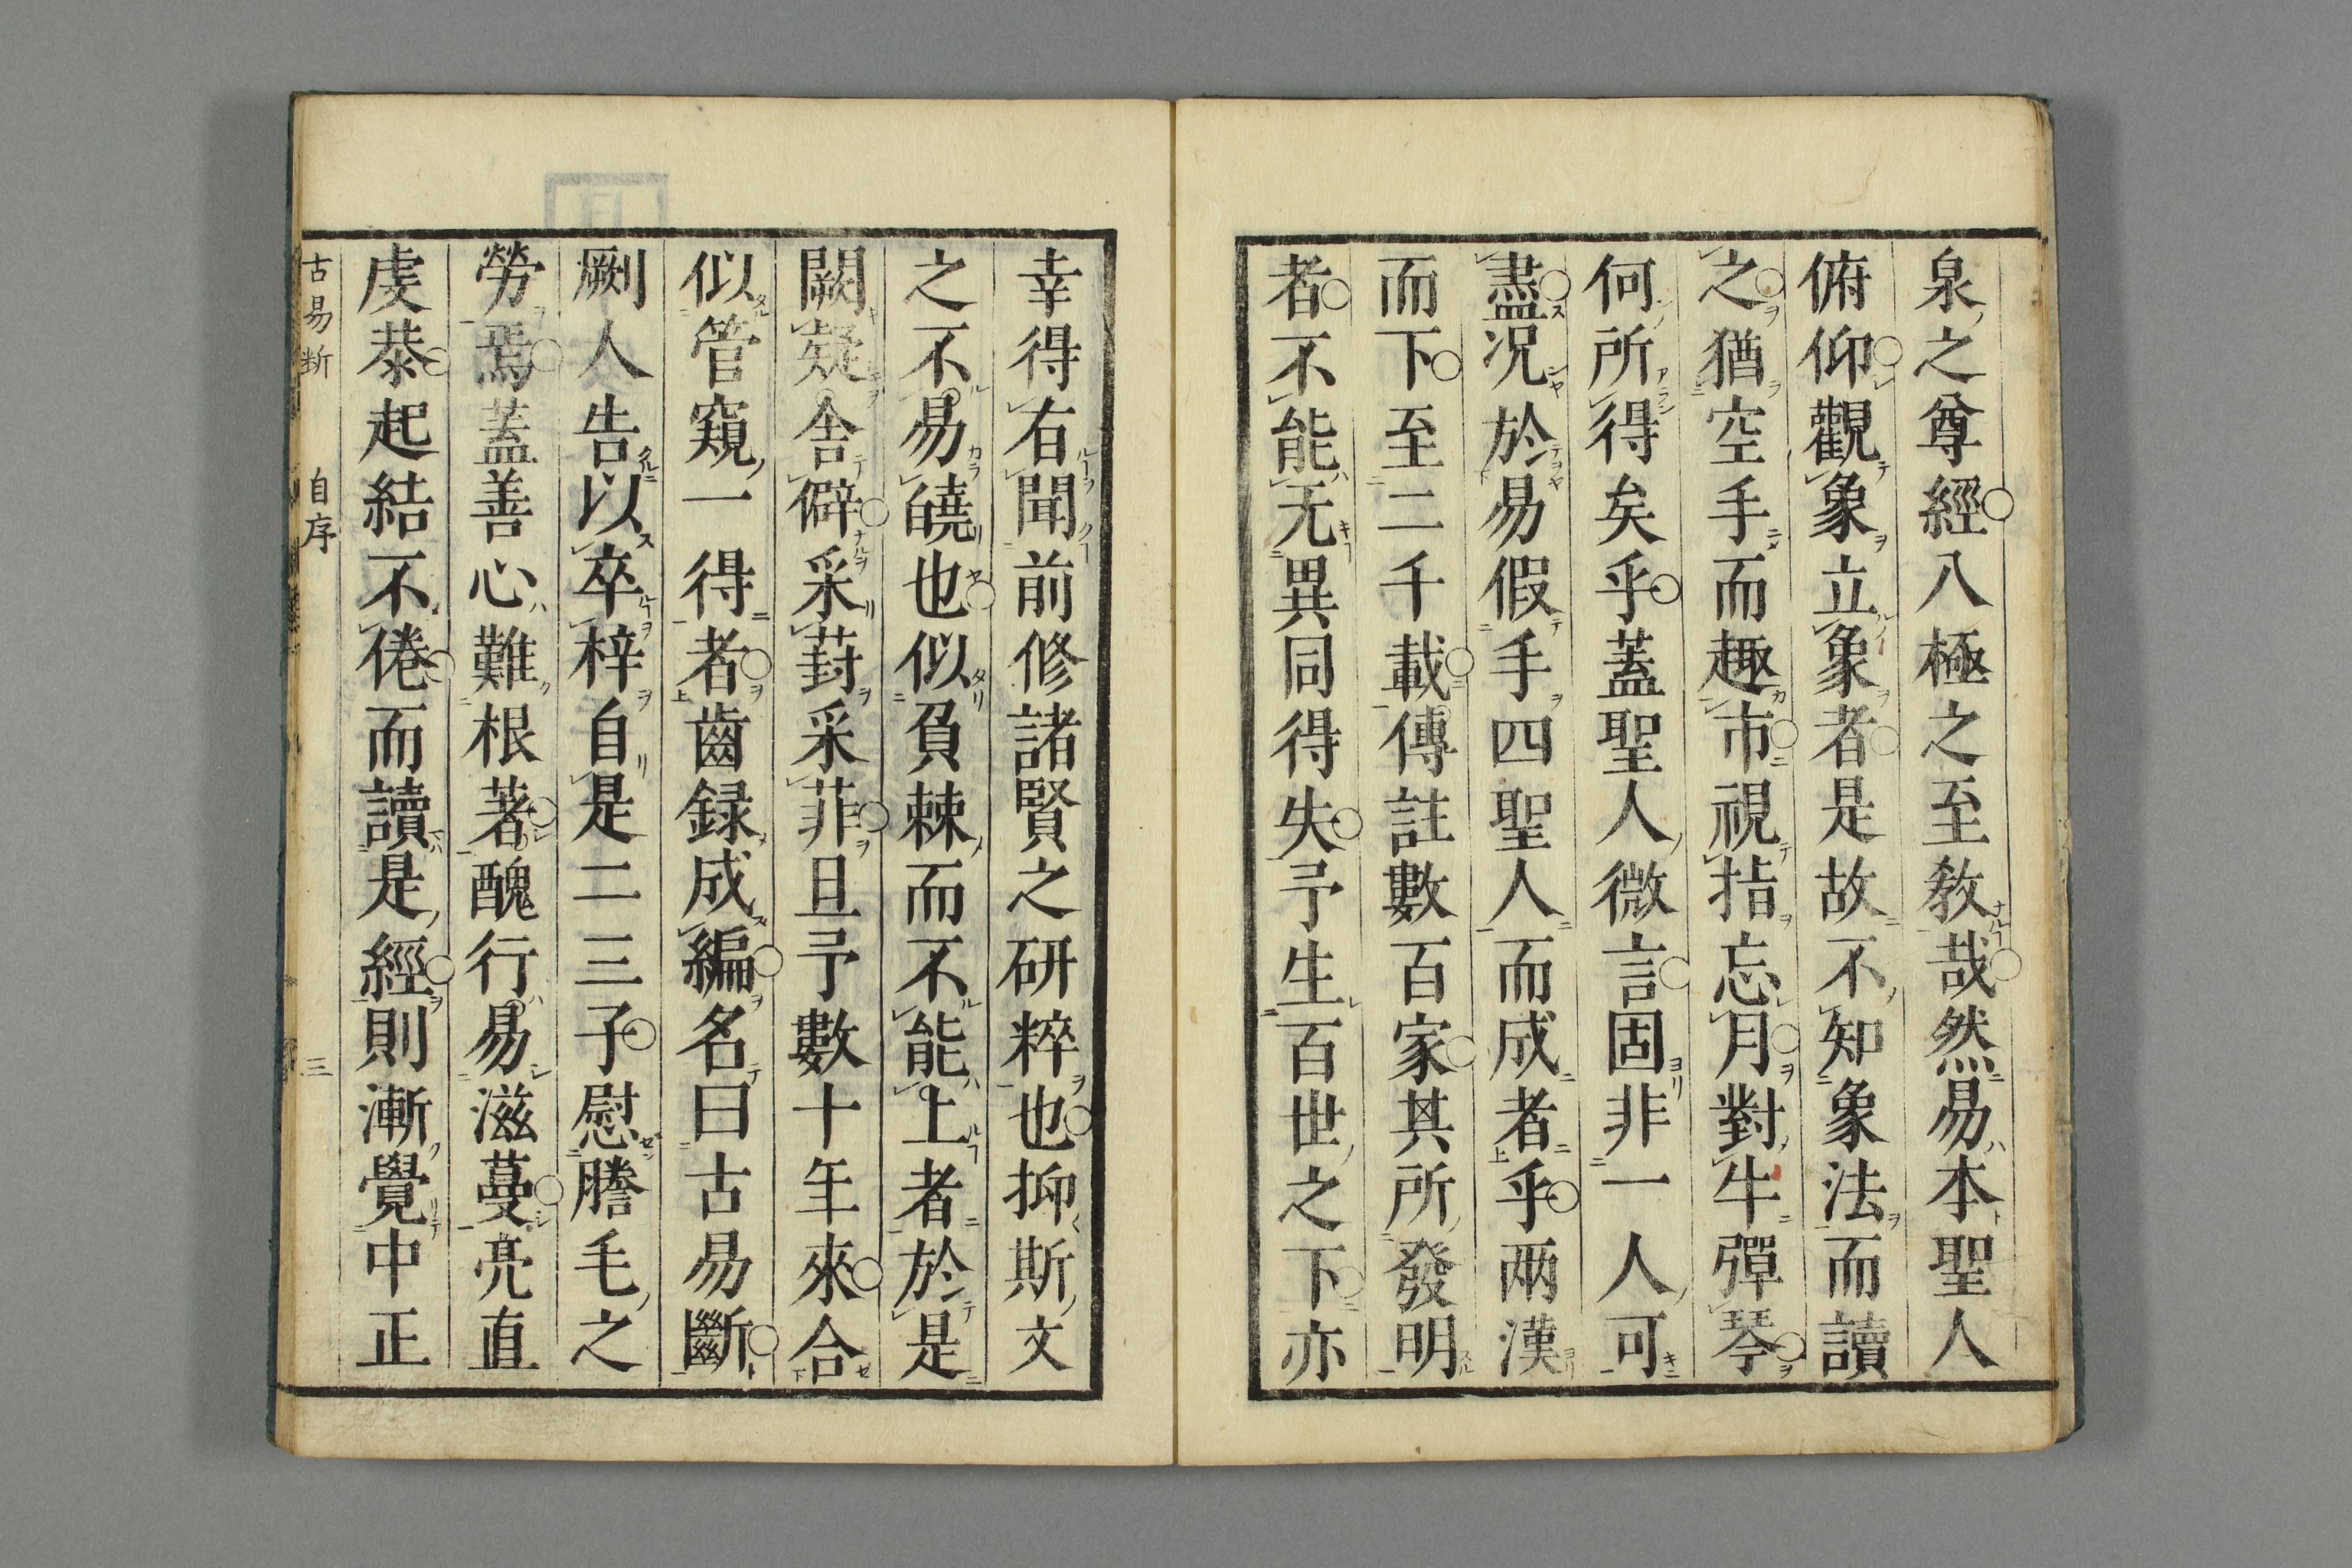 泉之尊經八極之至敎哉然易本聖人
俯仰觀象立象者是故不知象法而讀
之猶空手而趣市視指忘月對牛彈琴
何所得矣乎蓋聖人微言固非一人可
盡況於易假手四聖人而成者乎兩漢
而下至二千載傳註數百家其所發明
者不能无異同得失予生百世之下亦
幸得右聞前修諸賢之研粹也抑斯文
之不易皢也似負棘而不能上者於是
闕疑舍僻采葑采菲且予數十年來合
似管窺一得者齒録成編名曰古易斷
劂人告以卒梓自是二三子慰謄毛之
勞焉蓋善心難根著醜行易滋蔓亮直
虔恭起結不倦而讀是經則漸覺中正
古易断 自序 三